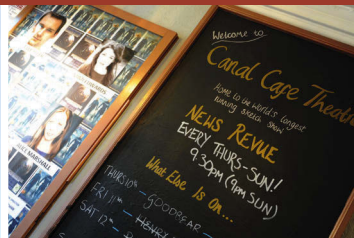 Welcome to
Canal Cafe Theatre
Home to the World's longest
running sketch show!
NEWS REVUE
EVERY THURS-SUN!
9.30PM (9PM SUN)
What Else Is On...
THURS 10th - GOODBEAR
FRI 11th -
SAT 12th -